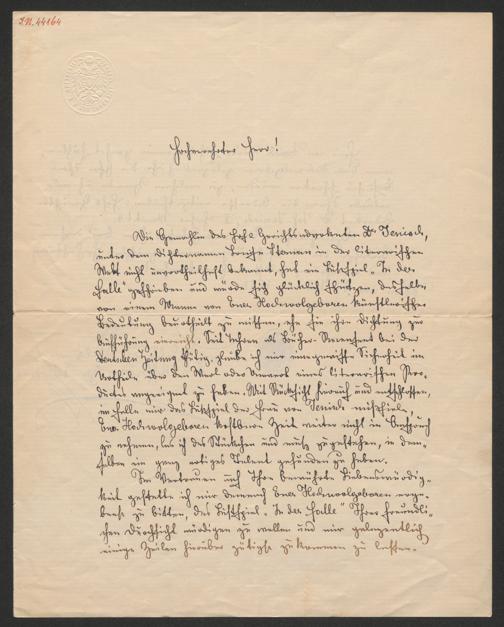 I.N. 44164
Hochverehrter Herr!
Die Gemahlin des Hof & Gerichtsadvokaten Dr
unter dem Dichternamen in der literarischen
Welt nicht unvortheilhaft bekannt, hat ein Lustspiel „In der
Falle“ geschrieben und würde sich glücklich schätzen, dasselbe
von einem Manne von Euer Hochwolgeboren künstlerischer
Bedeutung beurtheilt zu wissen, ehe sie ihre Dichtung zur
Aufführung einreicht. Seit Jahren als Bücher-Recensent bei der
Zeitung thätig, glaube ich mir einigermaßen Sicherheit im
Urtheile über den Wert oder Unwert eines literarischen Pro-
ductes angeeignet zu haben. Mit Rücksicht hierauf und entschlossen,
im Falle mir das Lustspiel der Frau von misfiele,
Euer Hochwolgeboren kostbare Zeit weiter nicht in Anspruch
zu nehmen, las ich das Stückchen und muß zugestehen, in dem-
selben ein ganz artiges Talent gefunden zu haben.
Im Vertrauen auf Ihre bewährte Liebenswürdig-
keit gestatte ich mir demnach Euer Hochwolgeboren erge-
benst zu bitten, das Lustspiel „In der Falle“ Ihrer freundli-
chen Durchsicht würdigen zu wollen und mir gelegentlich
einige Zeilen hierüber gütigst zukommen zu lassen.